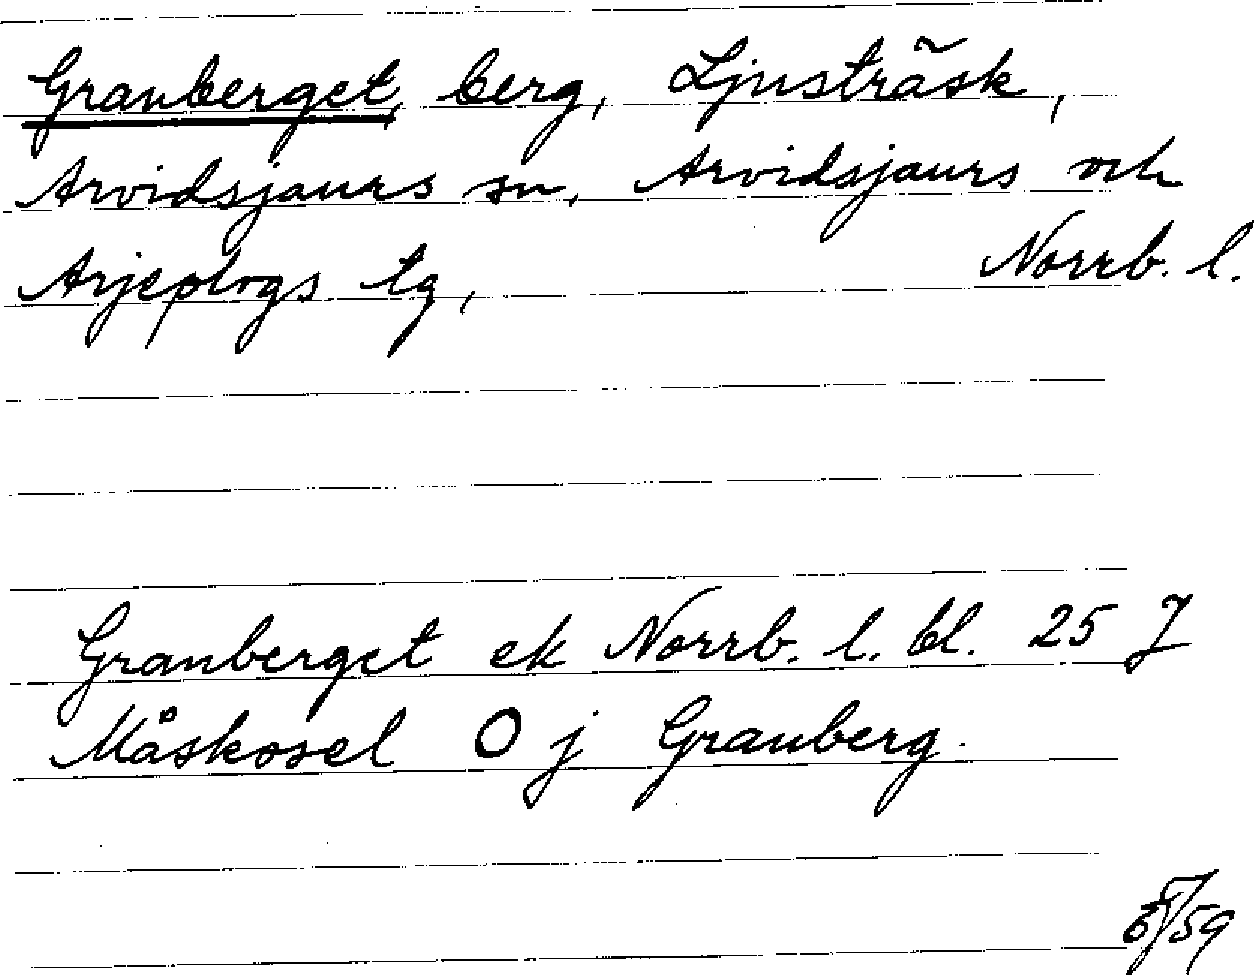 Granberget, berg, Ljusträsk,
Arvidsjaurs sn, Arvidsjaurs och
Arjeplogs tg, Norrb. l.
Granberget ek Norrb. l. bl. 25 J
Måskosel O j Granberg.